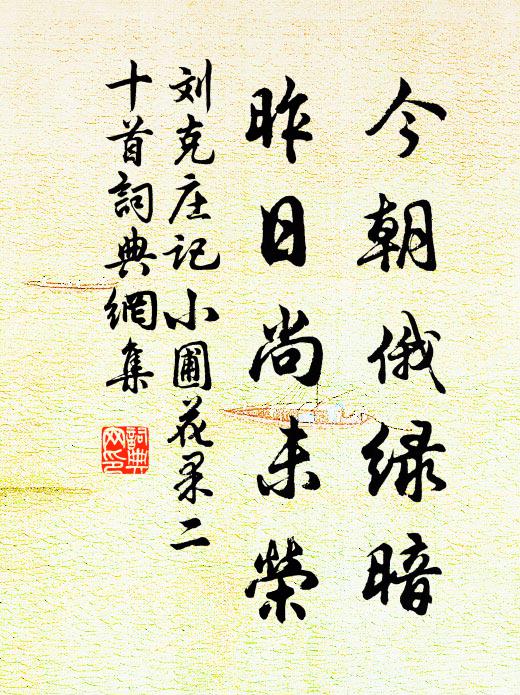 今朝俄绿暗
昨日尚未榮
刘克庄记小圃花果二
十首詞典網集
詞典
网印